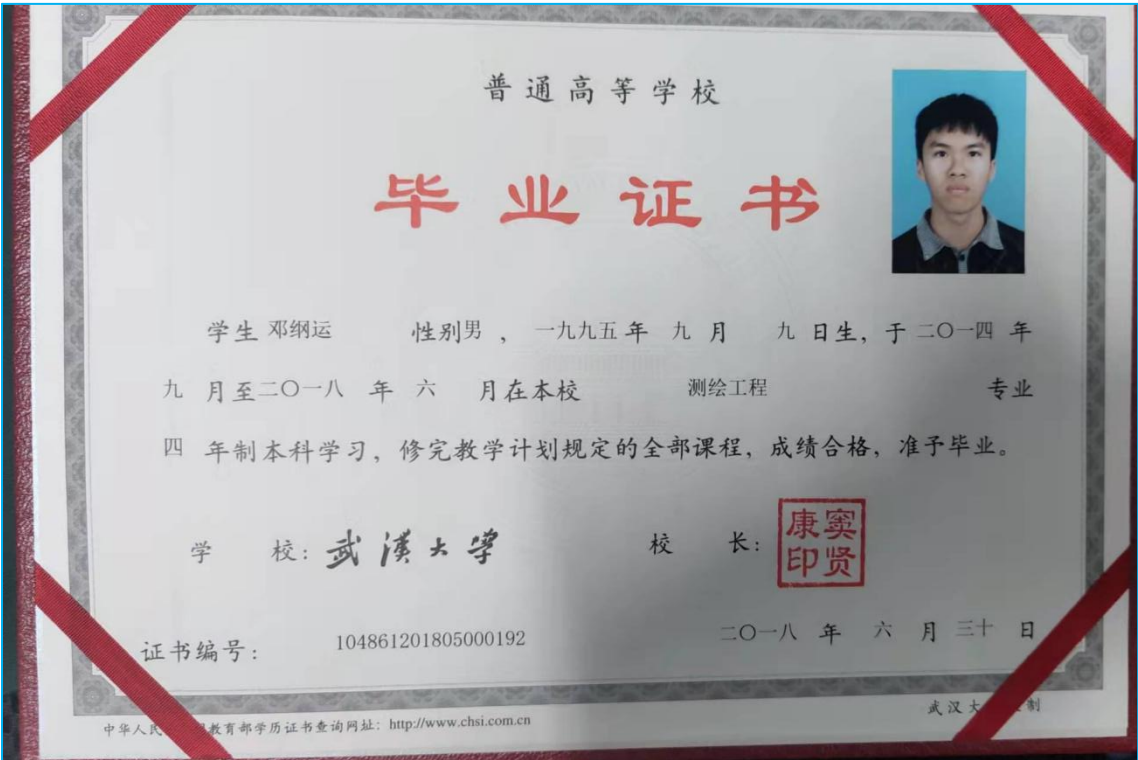 普通高等学校
毕业证书
学生 邓纲运 性别 男 , 一九九五 年 九 月 九 日生, 于 二〇一四 年
九 月至 二〇一八 年 六 月在本校 测绘工程 专业
四 年制本科学习, 修完教学计划规定的全部课程, 成绩合格, 准予毕业。
学 校: 武漢大學 校 长: 窦贤康印
证书编号: 104861201805000192 二〇一八 年 六 月 三十 日
中华人民 教育部学历证书查询网址: http://www.chsi.com.cn
武汉大 制